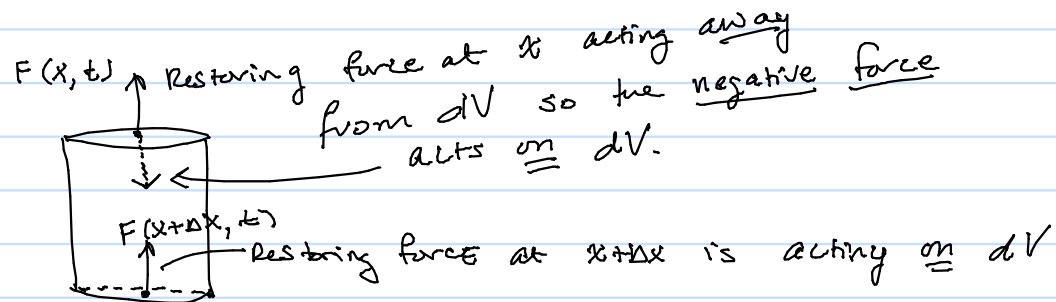 F(x, t) Restoring force at x acting away
from dV so the negative force
acts on dV.
F(x+Δx, t)
Restoring force at x+Δx is acting on dV